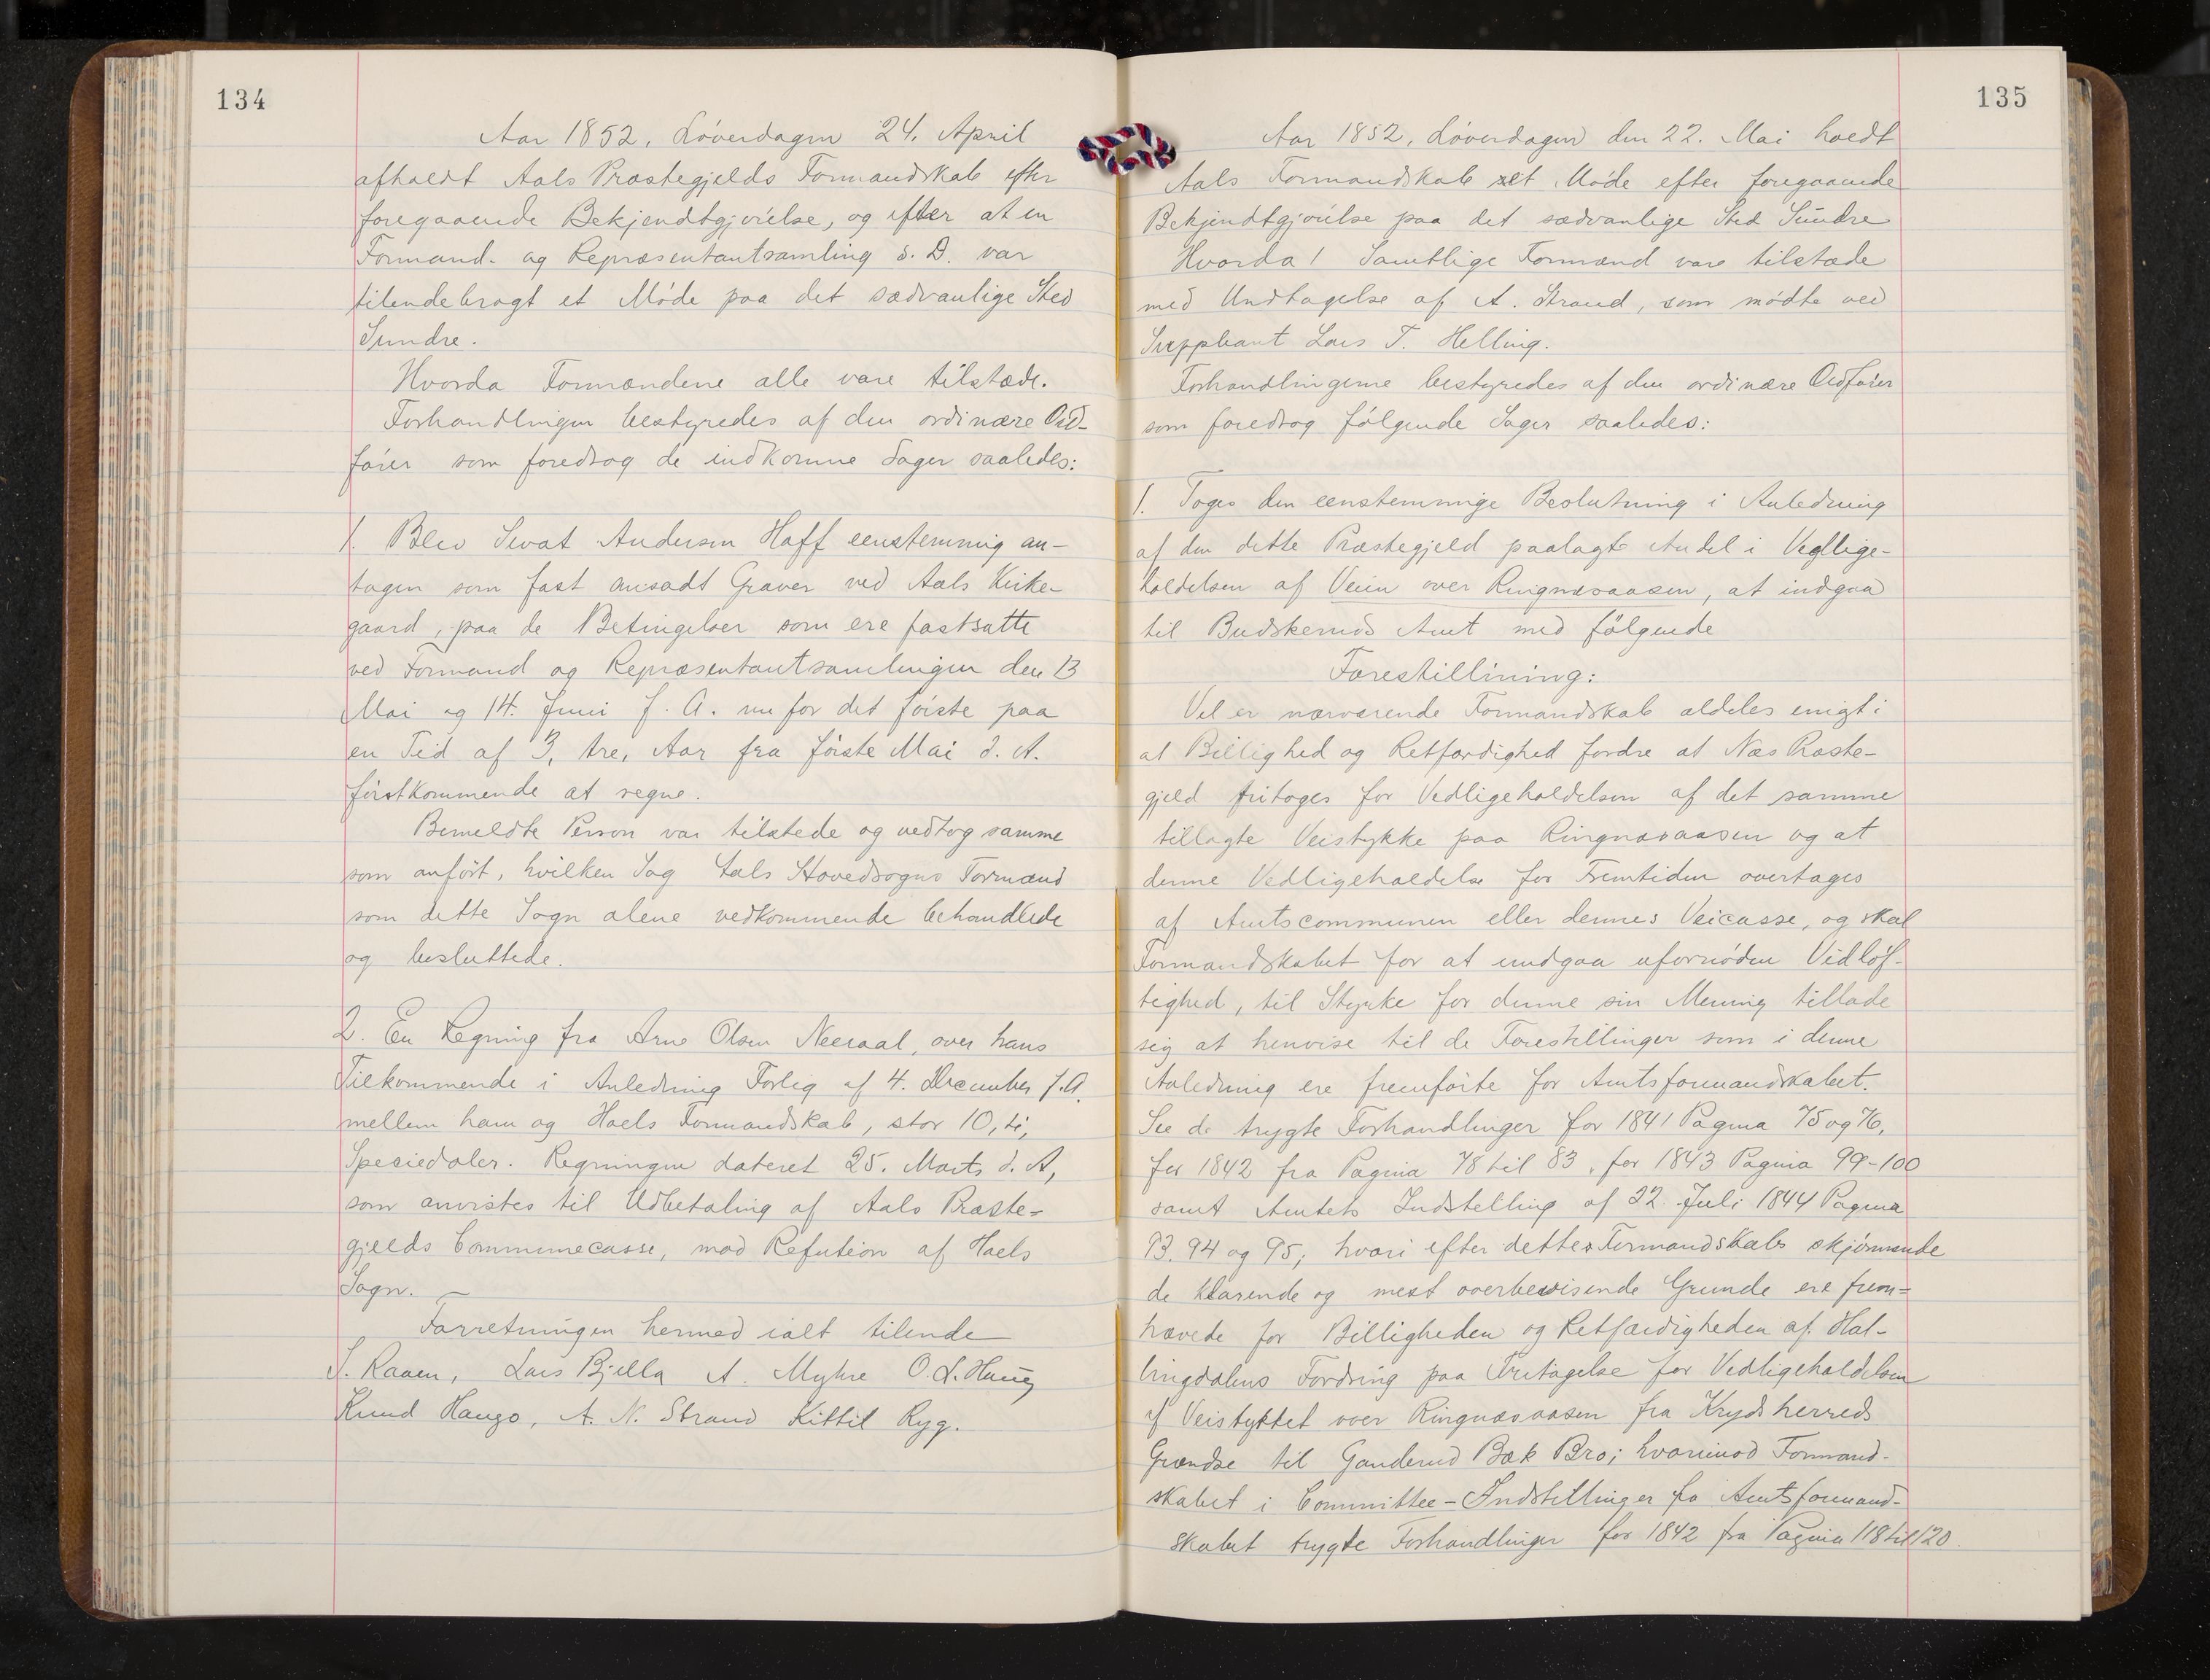 134
Aar 1852, Løverdagen 24. April
afholdt Aals Præstegjelds Formandskab efter
foregaaende Bekjendtgjørelse, og efter at en
Formand- og Repræsentantsamling s. D. var
tilendebragt et Møde paa det sædvanlige Sted
Sundre.
Hvorda Formændene alle vare tilstæde.
Forhandlingen bestyredes af den ordinære Ord-
fører som foredrog de indkomne Sager saaledes:
1. Blev Sivat Andersen Haff eenstemmig an-
tagen som fast ansadt Graver ved Aals Kirke-
gaard, paa de Betingelser som ere fastsatte
ved Formand og Repræsentantsamlingen den 13
Mai og 14. Juni f. A. nu for det første paa
en Tid af 3, tre, Aar fra første Mai d. A.
førstkommende at regne.
Bemeldte Person var tilstede og vedtog samme
som anført, hvilken Sag Aals Hovedsogns Formænd
som dette Sogn alene vedkommende behandlede
og besluttede.
2. En Regning fra Arne Olsen Neeraal, over hans
Tilkommende i Anledning Forlig af 4. December f. A.
mellem ham og Hoels Formandskab, stor 10, ti,
Speciedaler. Regningen dateret 25. Marts d. A,
som anvistes til Udbetaling af Aals Præste-
gjelds Communecasse, mod Refution af Hoels
Sogn.
Forretningen hermed ialt tilende
S. Raaen, Lars Bjella A. Myhre O. L. Haug
Knud Haugo, A. N. Strand Kittil Ryg.
135
Aar 1852, Løverdagen den 22. Mai holdt
Aals Formandskab et Møde efter foregaaende
Bekjendtgjørelse paa det sædvanlige Sted Sundre
Hvorda! Samtlige Formænd vare tilstæde
med Undtagelse af A. Strand, som mødte ved
Suppleant Lars T. Helling.
Forhandlingerne bestyredes af den ordinære Ordfører
som foredrog følgende Sager saaledes:
1. Toges den eenstemmige Beslutning i Anledning
af den dette Præstegjeld paalagte Andel i Vedlige-
holdelsen af Veien over Ringnæsaasen, at indgaa
til Budskeruds Amt med følgende
Forestillining:
Vel er nærværende Formandskab aldeles enigt i
at Billighed og Retfærdighed fordre at Næs Præste-
gjeld fritages for Vedligeholdelsen af det samme
tillagte Veistykke paa Ringnæsaasen og at
denne Vedligeholdelse for Fremtiden overtages
af Amtscommunen eller dennes Veicasse, og skal
Formandskabet for at undgaa ufornøden Vidløf-
tighed, til Styrke for denne sin Mening tillade
sig at henvise til de Forestillinger som i denne
Anledning ere fremførte for Amtsformandskabet.
See de trygte Forhandlinger for 1841 Pagina 75 og 76,
for 1842 fra Pagina 78 til 83, for 1843 Pagina 99-100
samt Amtets Indstelling af 22 Juli 1844 Pagina
93. 94 og 95; hvori efter dettes Formandskabs skjønnende
de klarende og mest overbevisende Grunde ere frem=
hævede for Billigheden og Retfærdigheden af Hal-
lingdalens Fordring paa Fritagelse for Vedligeholdelsen
af Veistyktet over Ringnæsaasen fra Krydsherreds
Grændse til Ganderud Bæk Bro; hvorimod Formand-
skabet i Committee-Indstillinger fo Amtsformand-
skabet trygte Forhandlinger for 1842 fra Pagina 118 til 120